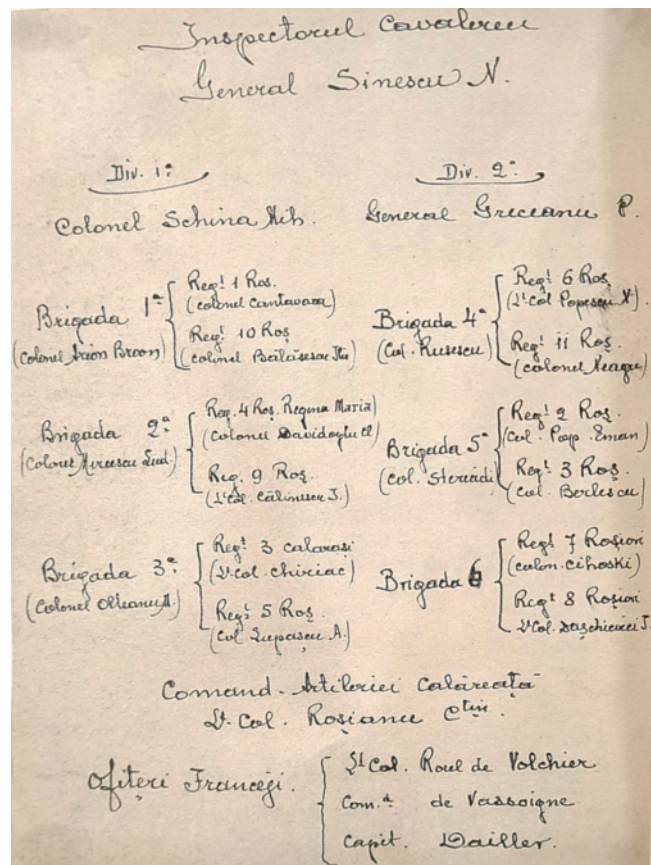 Inspectorul Cavaleriei
General Sinescu N.
Div. 1ª
Colonel Schina Mih.
Brigada 1ª
(colonel Arion Broon)
Regt 1 Roș.
(colonel Cantavara)
Regt 10 Roș
(colonel Bălăsescu Ilie
Brigada 2ª
(Colonel Mircescu Lud.)
Reg. 4 Roș. Regina Maria)
(Colonel Davidoglu Cl
Reg. 9 Roș.
(Lt Col. Călinescu I.)
Brigada 3ª
(Colonel Olteanu M.)
Regt 3 calarasi
(Lt-col. Chiriac)
Regt 5 Roș.
(Col Lupașcu A.)
Div. 2ª
General Greceanu P.
Brigada 4ª
(Col. Rusescu)
Regt 6 Roș
(Lt Col Popescu N).
Regt 11 Roș.
(colonel Neagu)
Brigada 5ª
(col. Steriadi)
Regt 2 Roș.
(Col. Pop. Eman)
Regt 3 Roș.
(Col. Berlescu)
Brigada 6
Regt 7 Roșiori
(colon. Cihoski)
Regt 8 Roșiori
Lt Col. Daschievici I.
Comand. Artileriei Calăreață
Lt-Col. Roșianu Ctin.
Ofițeri Franceji.
Lt Col. Roul de Volchier
Com.t de Vassoigne
Capit. Dailler.